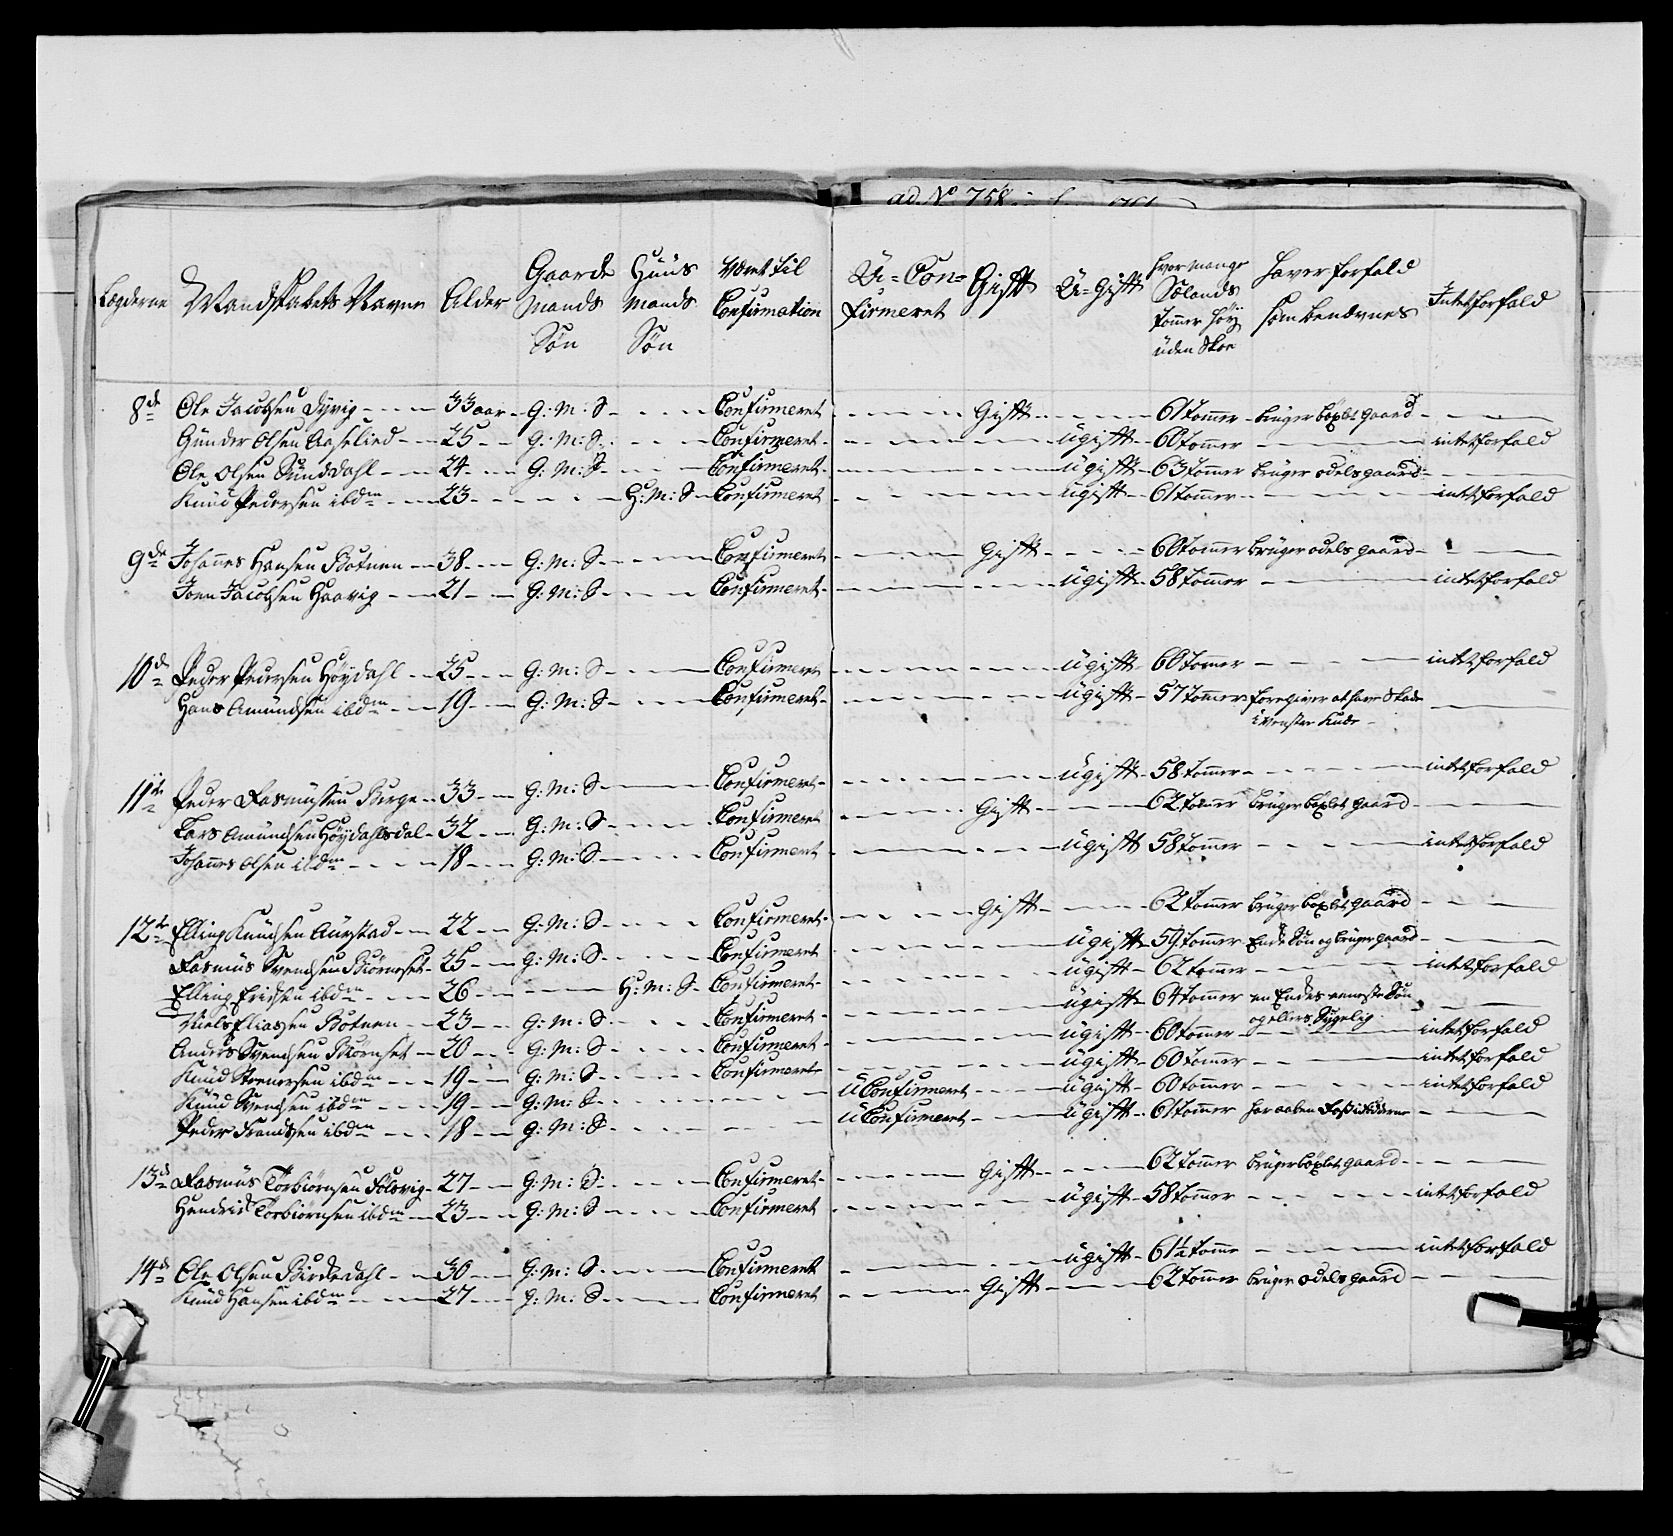 ad. No 758
Lægderne Mandskabets Navne Alder Gaardemands Søn Huusmands Søn Været til Confirmation U=Confirmeret Gift U=Gift hvormange Sølands tommer høy uden Skoe haver forfald som benævnes Intet forfald
8de Ole Jacobsen Dyvig 33 aar G: M: S Confirmeret Gift 61 tommer bruger böxlet gaard
Gunder Olsen Aaselied 25 G: M: S Confirmeret ugift 60 tommer intet forfald
Ole Olsen Sunddahl 24 G: M: S Confirmeret ugift 63 tommer bruger odels gaard
Knud Pedersen ibdm 23 H: M: S Confirmeret ugift 61 tommer intet forfald
9de Johannes Hansen Botnen 38 G: M: S Confirmeret Gift 60 tommer bruger odels gaard
Joen Jacobsen Haavig 21 G: M: S Confirmeret ugift 58 tommer intet forfald
10de Peder Pedersen Höydahl 25 G: M: S Confirmeret ugift 60 tommer intet forfald
Hans Amundsen ibdm 19 G: M: S Confirmeret ugift 57 tommer foregiver at have Skade
i venster Knæe
11te Peder Rasmussen Berge 33 G: M: S Confirmeret ugift 58 tommer intet forfald
Lars Amundsen Höydahlsdal 32 G: M: S Confirmeret Gift 62 tommer bruger böxlet gaard
Johannes Olsen ibdm 18 G: M: S Confirmeret ugift 58 tommer intet forfald
12te Elling Knudsen Aurstad 22 G: M: S Confirmeret Gift 62 tommer bruger böxlet gaard
Rasmus Svendsen Biörneset 25 G: M: S Confirmeret ugift 59 tommer Enke Søn og bruger gaard
Elling Erichsen ibdm 26 H: M: S Confirmeret ugift 62 tommer intet forfald
Niels Eliassen Botnen 23 G: M: S Confirmeret ugift 64 tommer en Enkes eeneste Søn
og ellers Sygelig
Anders Svendsen Biörneset 20 G: M: S Confirmeret ugift 60 tommer intet forfald
Knud Steenersen ibdm 19 G: M: S Confirmeret ugift 60 tommer intet forfald
Knud Svendsen ibdm 19 G: M: S uConfirmeret ugift 60 tommer intet forfald
Peder Frandsen ibdm 18 G: M: S uConfirmeret ugift 61 tommer har aaben
13de Rasmus Torbiörnsen Fölsvig 27 G: M: S Confirmeret Gift 62 tommer bruger böxlet gaard
Hendrich Torbiörnsen ibdm 23 G: M: S Confirmeret ugift 58 tommer intet forfald
14de Ole Olsen Birkedahl 30 G: M: S Confirmeret ugift 61½ tomme intet forfald
Knud Hansen ibdm 27 G: M: S Confirmeret Gift 62 tommer bruger odels gaard